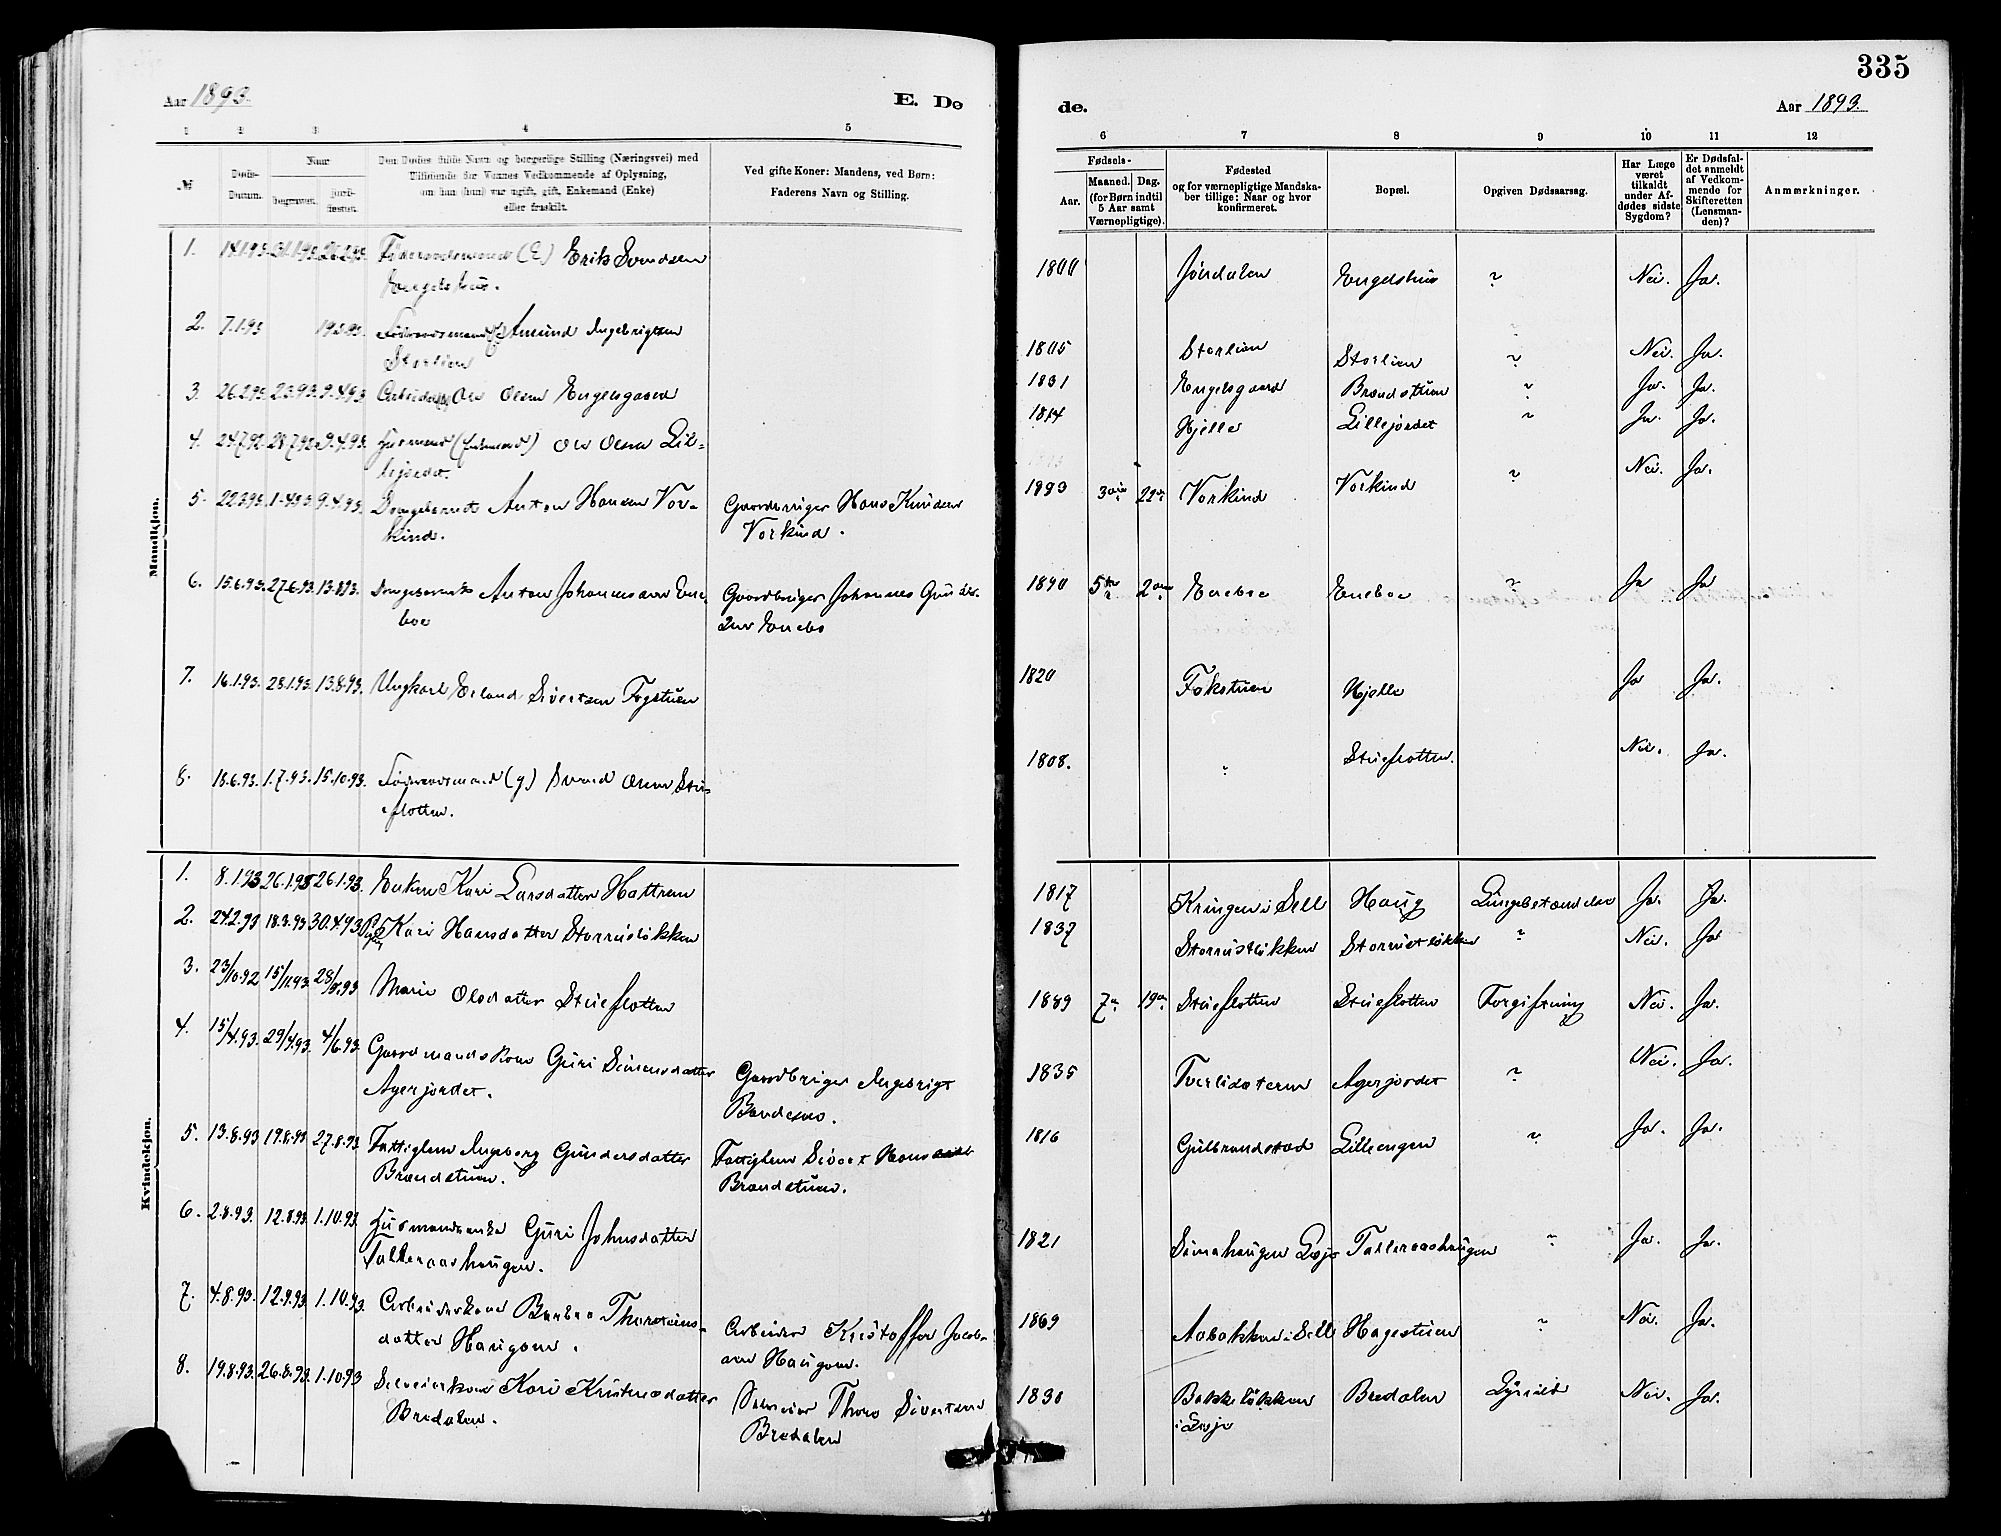 335
Aar 1893.
E. Dø
de.
Aar 1893.
1 2 3 4 5 6 7 8 9 10 11 12
№
Døds-
Datum.
Naar
begravet.
jordfæstet.
Den Dødes fulde Navn og borgerlige Stilling (Næringsvei) med
Tilføiende for Voxnes Vedkommende af Oplysning,
om han (hun) var ugift, gift, Enkemand (Enke)
eller fraskilt.
Ved gifte Koner: Mandens, ved Børn:
Faderens Navn og Stilling.
Fødsels-
Aar.
Maaned. Dag.
(for Børn indtil
5 Aar samt
Værnepligtige).
Fødested
og for værnepligtige Mandska-
ber tillige: Naar og hvor
konfirmeret.
Bopæl.
Opgiven Dødsaarsag.
Har Læge
været
tilkaldt
under Af-
dødes sidste
Sygdom?
Er Dødsfal-
det anmeldt
af Vedkom-
mende for
Skifteretten
(Lensman-
den)?
Anmærkninger.
Mandkjøn.
1. 14.1.93. 31.1.93. 26.2.93. (E) Erik Svendsen
Engelshus.
1800 Jøndalen Engelshus ? Nei. Ja.
2. 7.1.93 Amund Ingebrigtsen
Storlien
1805 Storlien Storlien ? Nei. Ja.
3. 26.2.93. 9.4.93 Ole Olsen Engelsgaard
1831 Engelsgaard Brændstuen ? Ja. Ja.
4. 24.7.92. 28.7.92. 9.4.93. Husmand Ole Olsen Lil-
lejordet.
1814 Hjelle Lillejordet ? Ja. Ja.
5. 22.3.93. 1.4.93. 9.4.93. Drengebarnet Anton Hansen Vor-
kind.
Gaardbruger Hans Knudsen
Vorkind.
1893 3 22 Vorkind Vorkind ? Nei. Ja.
6. 15.6.93. 27.6.93. 13.8.93. Drengebarnet Anton Johannessen Ene-
boe
Gaardbruger Johannes
Enebo
1890 5 2 Eneboe Eneboe ? Ja Ja
7. 16.1.93. 28.1.93. 13.8.93. Ungkarl Erland Sivertsen Fogstuen
1820 Fokstuen Hjelle Ja Ja.
8. 18.6.93. 1.7.93. 15.10.93. (g) Svend Olsen Stue-
flotten.
1808. ? Stueflotten. Nei. Ja.
Kvindekjøn.
1. 8.1.93 26.1.93 26.1.93. Enken Kari Larsdatter Hattrem
1817 Kringen i Sell Haug Lungebetændelse Ja. Ja.
2. 24.2.93 18.3.93 30.4.93 Kari Hansdatter Storrusløkken
1837 Storrustløkken Storrustløkken ? Nei. Ja
3. 23/10.92 15/11.93. 28/5.93 Marie Olsdatter Stueflotten
1889 7 19 Stueflotten Stueflotten Forgiftning Nei. Ja.
4. 15/4.93. 29/4.93. 4/6.93. Gaardmandskone Guri Simensdatter
Agerjordet.
Gaardbruger Ingebrigt
1835 Tverlisæteren Agerjordet ? Nei. Ja.
5. 13.8.93 19.8.93 27.8.93 Fattiglem Ingeborg Gundersdatter
Brændstuen.
Fattiglem Sivert Hans
Brændstuen.
1816 Gulbrandstad Lilleengen ? Ja. Ja.
6. 2.8.93. 12.8.93. 1.10.93. Husmandsenke Guri Johnsdatter
Talleraashaugen.
1821 Simahaugen Lesje Talleraashaugen ? Ja. Ja.
7. 4.8.93. 12.9.93. 1.10.93. Arbeiderkone Barbro Thorsteins-
datter Haugom.
Arbeider Kristoffer Jacob-
sen Haugom.
1869 Aabakken i Sell Hagestuen ? Nei. Ja.
8. 19.8.93. 26.8.93. 1.10.93 Selveierkone Kari Kristensdatter
Bredalen.
Selveier Thore Sivertsen
Bredalen
1830 Bakkeløkken
i Lesje
Bredalen Nei. Ja.